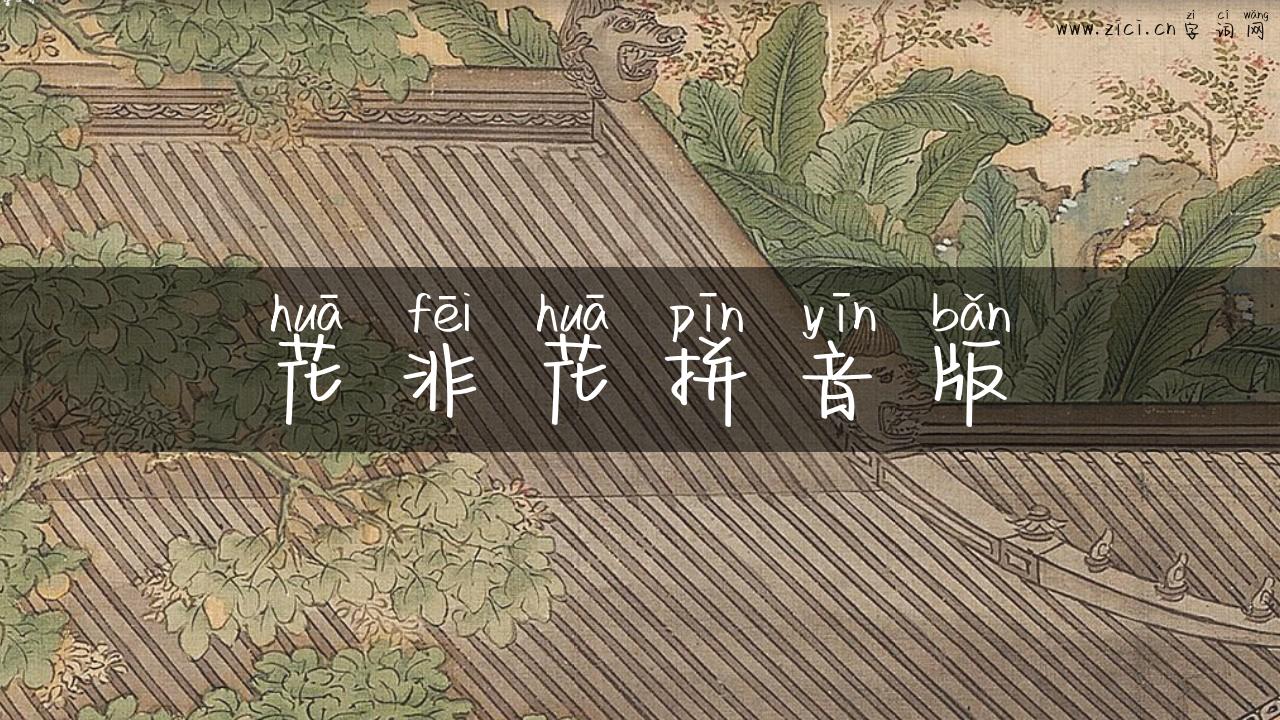 zì cí wǎng
www.zici.cn 字词网
huā fēi huā pīn yīn bǎn
花非花拼音版